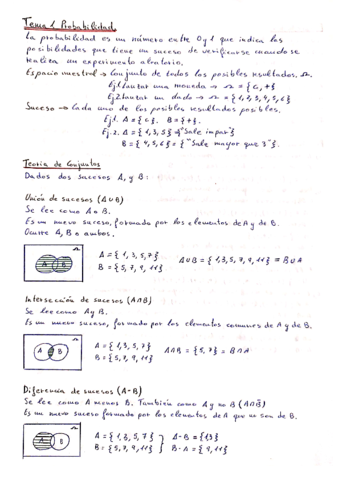 Tema 1 Probabilidad
La probabilidad es un número entre 0 y 1 que indica las
posibilidades que tiene un suceso de verificarse cuando se
realiza un experimento aleatorio.
Espacio muestral → Conjunto de todos los posibles resultados. Ω.
Ej1. Lanzar una moneda → Ω = {c, +}
Ej2. Lanzar un dado → Ω = {1, 2, 3, 4, 5, 6}
Suceso → Cada uno de los posibles resultados posibles.
Ej.1. A = {c}. B = {+}.
Ej.2. A = {1, 3, 5} "Sale impar"}
B = {4, 5, 6} = {"Sale mayor que 3"}.
Teoría de Conjuntos
Dados dos sucesos A, y B:
Unión de sucesos (A∪B)
Se lee como A o B.
Es un nuevo suceso, formado por los elementos de A y de B.
Ocurre A, B o ambos.
A B
A = {1, 3, 5, 7}
B = {5, 7, 9, 11}
A∪B = {1, 3, 5, 7, 9, 11} = B∪A
Intersección de sucesos (A∩B)
Se lee como A y B.
Es un nuevo suceso, formado por los elementos comunes de A y de B.
A B
A = {1, 3, 5, 7}
B = {5, 7, 9, 11}
A∩B = {5, 7} = B∩A
Diferencia de sucesos (A-B)
Se lee como A menos B. También como A y no B (A∩B̄)
Es un nuevo suceso formado por los elementos de A que no son de B.
A B
A = {1, 3, 5, 7} A-B = {1, 3}
B = {5, 7, 9, 11} B-A = {9, 11}